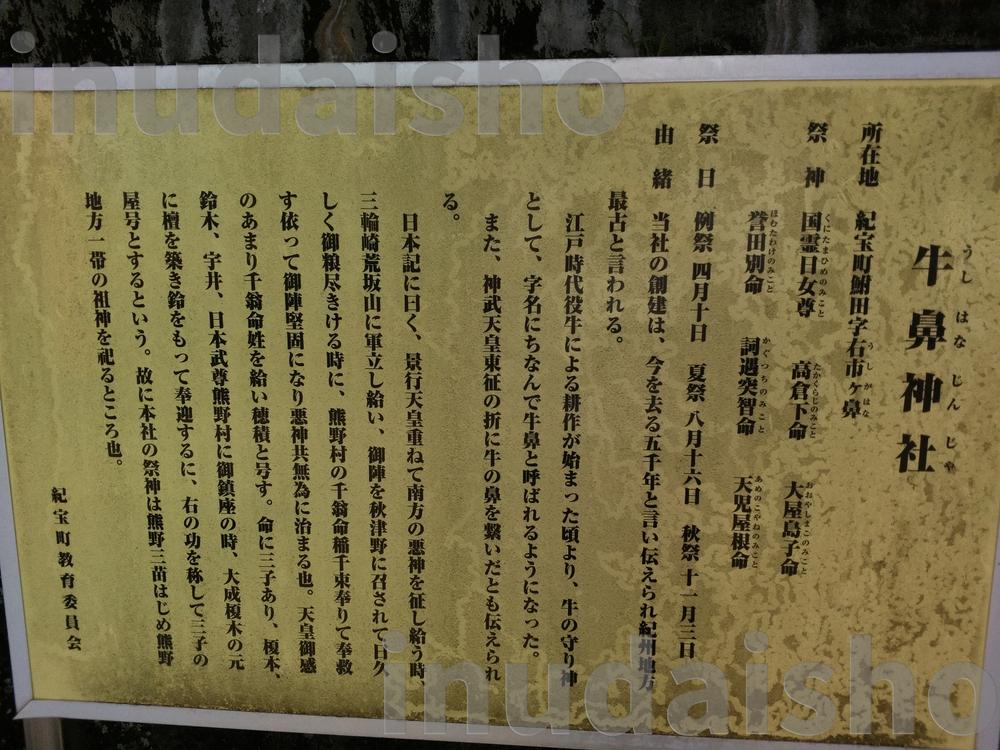 牛鼻神社
うしはなじんじゃ
所在地 紀宝町鮒田字右市ヶ鼻
うしがはな
祭神 国霊日女尊 高倉下命 大屋島子命
くにたまひめのみこと たかくらじのみこと おおやしまこのみこと
誉田別命 訶遇突智命 天児屋根命
ほむたわけのみこと かぐつちのみこと あめのこやねのみこと
祭日 例祭 四月十日 夏祭 八月十六日 秋祭 十一月三日
由緒 当社の創建は、今を去る五千年と言い伝えられ紀州地方
最古と言われる。
江戸時代役牛による耕作が始まった頃より、牛の守り神
として、字名にちなんで牛鼻と呼ばれるようになった。
また、神武天皇東征の折に牛の鼻を繋いだとも伝えられ
る。
日本記に曰く、景行天皇重ねて南方の悪神を征し給う時、
三輪崎荒坂山に軍立し給い、御陣を秋津野に召されて日久
しく御粮尽きける時に、熊野村の千翁命稲千束奉りて奉救
す依って御陣堅固になり悪神共無為に治まる也。天皇御感
のあまり千翁命姓を給い穂積と号す。命に三子あり、榎本、
鈴木、宇井、日本武尊熊野村に御鎮座の時、大成榎木の元
に檀を築き鈴をもって奉迎するに、右の功を称して三子の
屋号とするという。故に本社の祭神は熊野三苗はじめ熊野
地方一帯の祖神を祀るところ也。
紀宝町教育委員会
inudaisho
inudaisho